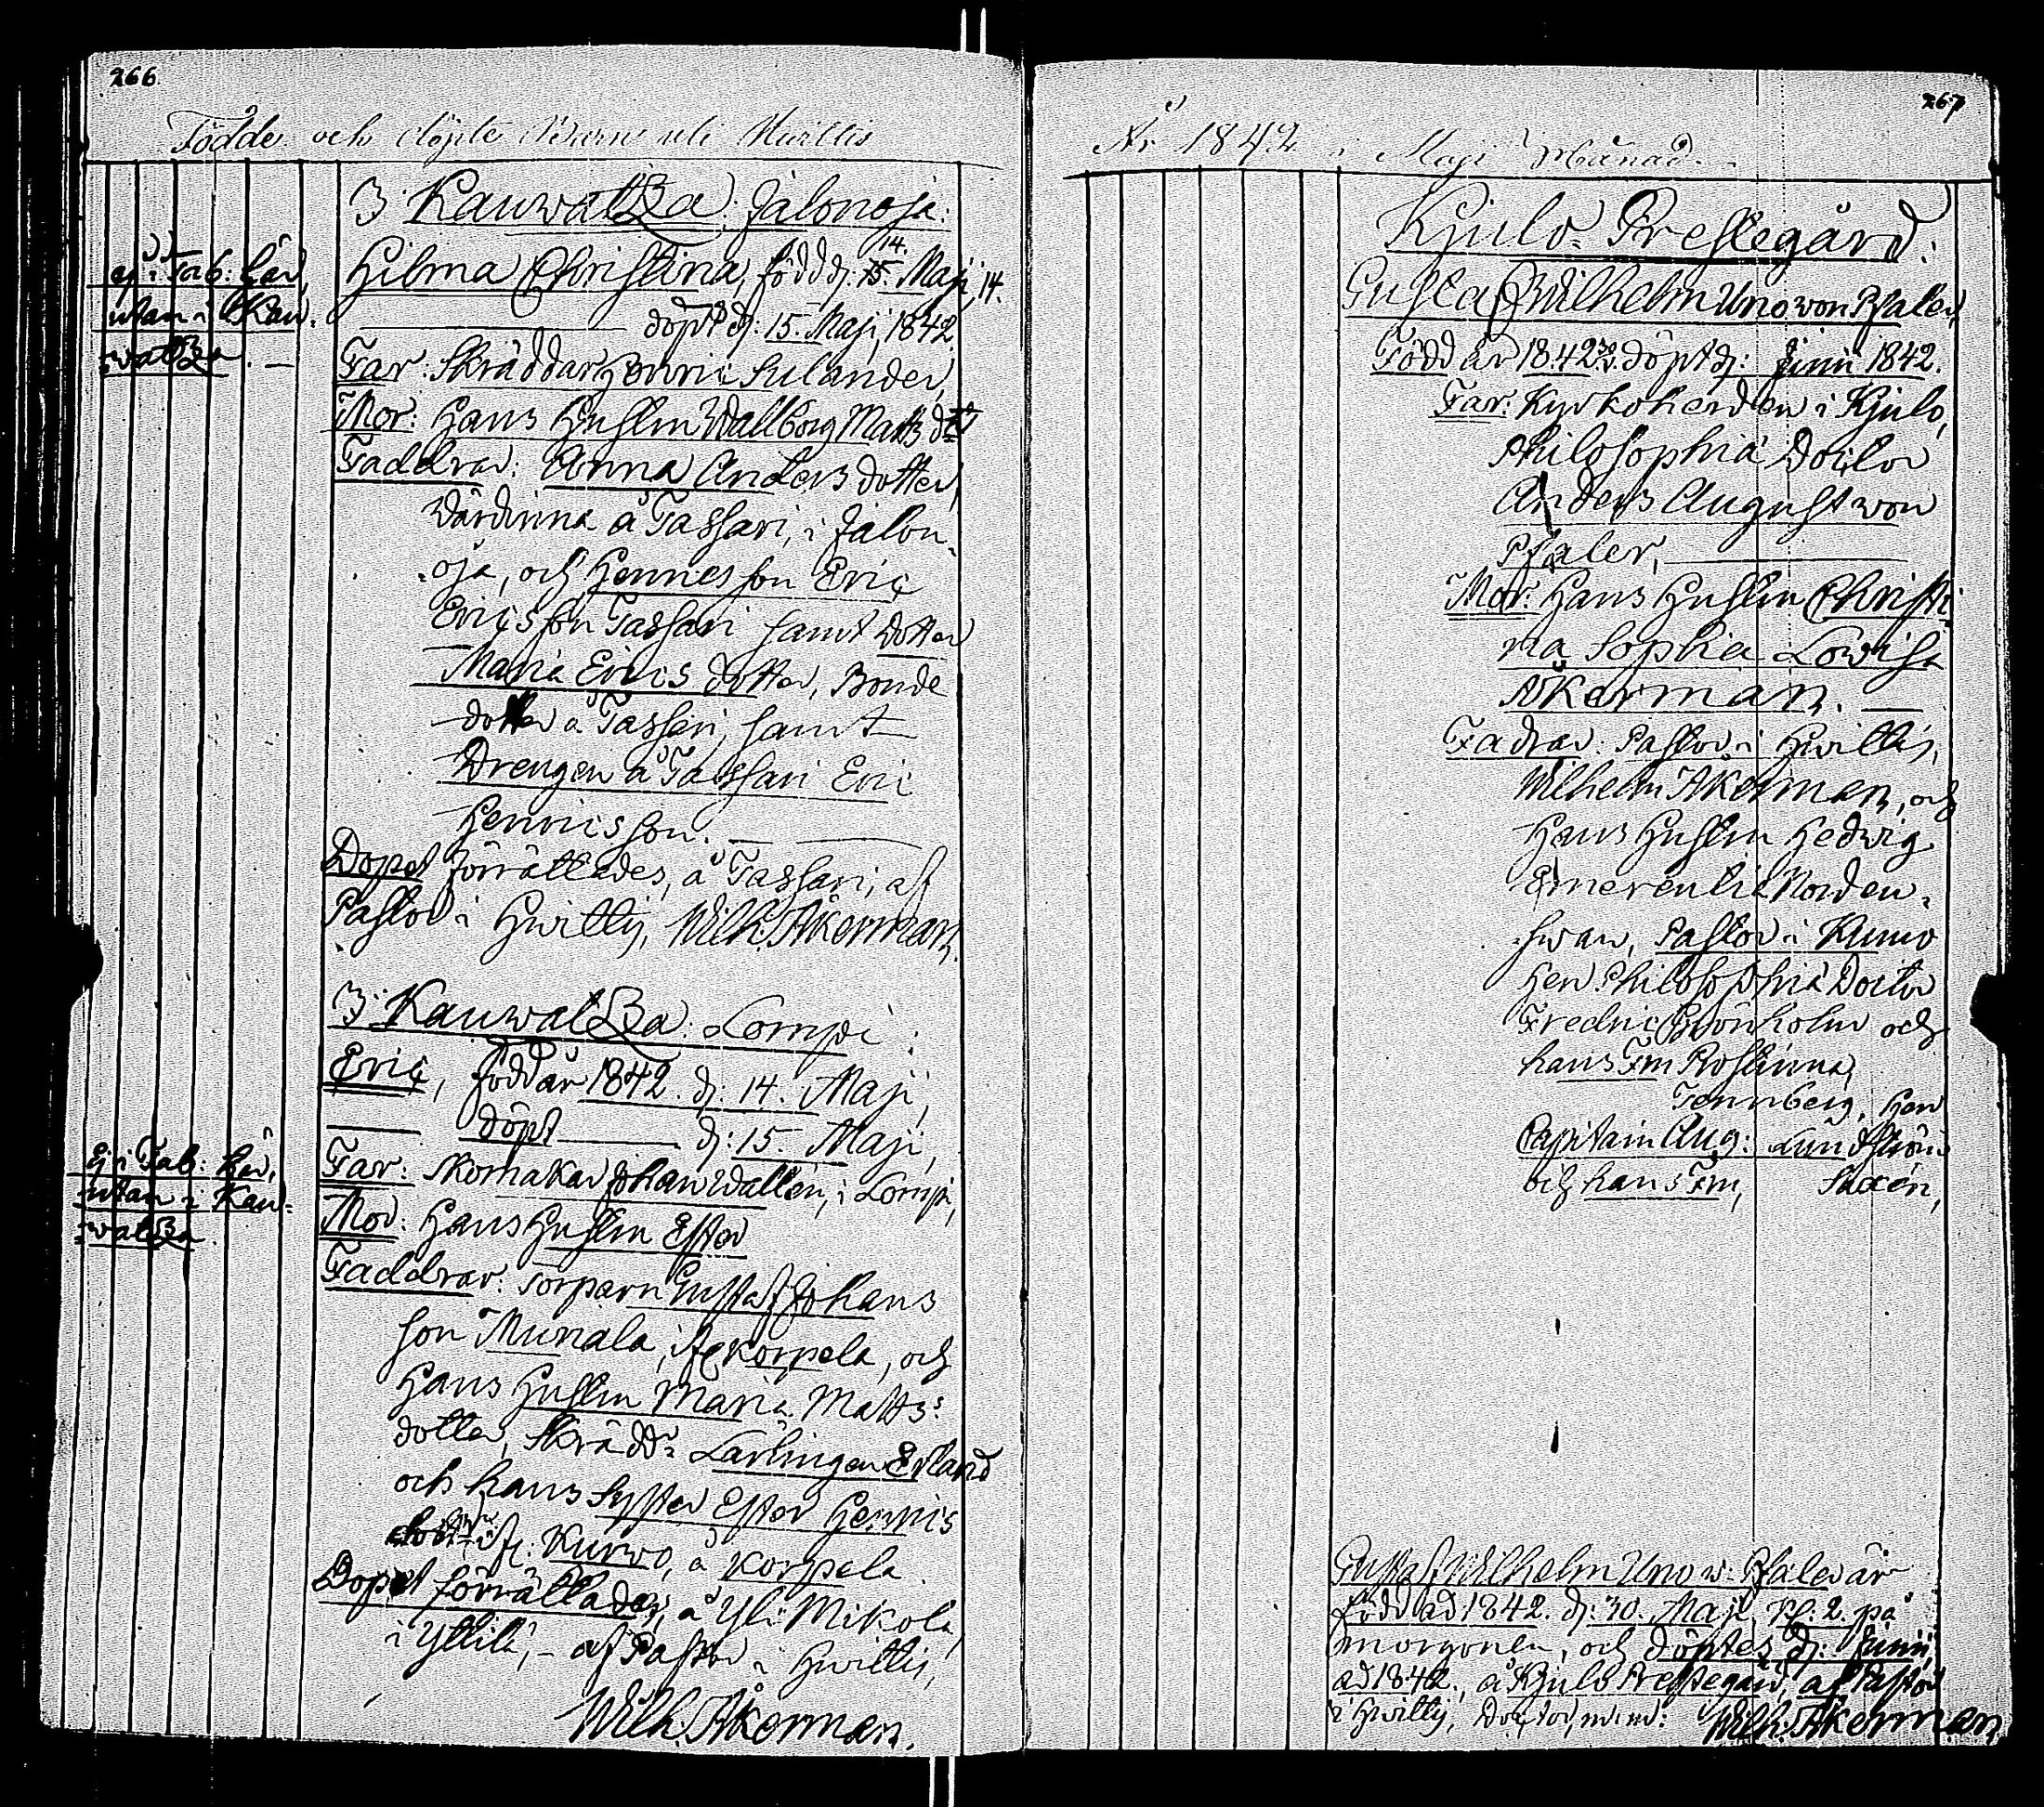 266
Födde och döpte Barn uti Hvittis
3. Kauwatza: Jalonoja:
Hilma Christina, född d: 15. Maji, 14.
14.
döpt d: 15. Maji, 1842.
ej i Tab: här,
utan i Kau-
watza. —
Far: Skräddar Henric Sulander,
Mor: Hans Hustru Wallborg Matts dtr
Faddrar: Anna Anders dotter,
Värdinna å Tassari, i Jalon-
oja, och Hennes son Eric
Ericsson Tassari samt dotter
Maria Erics dotter, Bonde
dotter å Tassari, samt
Drengen å Tassari Eric
Henricsson.
Dopet förrättades, å Tassari, af
Pastor i Hvittis, Wilh. Åkerman.
3. Kauwatza: Lompi:
Eric, född år 1842. d: 14. Maji,
döpt d: 15. Maji,
Ej i Tab: här,
utan i Kau-
watza.
Far: Skomakar Johan Wallen, i Lompi,
Mor: Hans Hustru Ester
Faddrar: Torparn Gustaf Johans
son Munala, i Korpela, och
Hans Hustru Maria Matts-
dotter, Skrädd: Lärlingen Erland
och hans Syster Ester Henrics
Kurwo, å Korpela.
Dopet förrättades, å Yli Mikola,
i Yttilä, — af Pastor i Hvittis,
Wilh. Åkerman.
267
År 1842 i Maji Månad.
Kjulo Prestegård:
Gustaf Wilhelm Uno von Pfaler,
Född år 1842. 30/5. döpt d: Junii 1842.
Far: Kyrkoherden i Kjulo,
Philosophiä Doctor
Anders August von
Pfaler,
Mor: Hans Hustru Christi-
na Sophia Lovisa
Åkerman.
Fadrar: Pastor i Hvittis,
Wilhelm Åkerman, och
Hans Hustru Hedvig
Emerentia Norden-
swan, Pastor i Kumo
Herr Philosophiä Doctor
Fredric Grönholm och
hans Fru Rosinna,
Tennberg, Herr
Capitain Aug: Lundström
och hans Fru, Saxén,
Gustaf Wilhelm Uno v: Pfaler är
född ad 1842. d: 30. Maji, kl: 2. på
morgonen, och döptes d: Junii,
ad 1842, å Kjulo Prestegård, af Pastor
i Hvittis, Doctor, m: m: Wilh: Åkerman